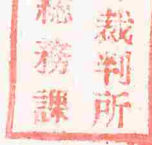 裁判所
総務課